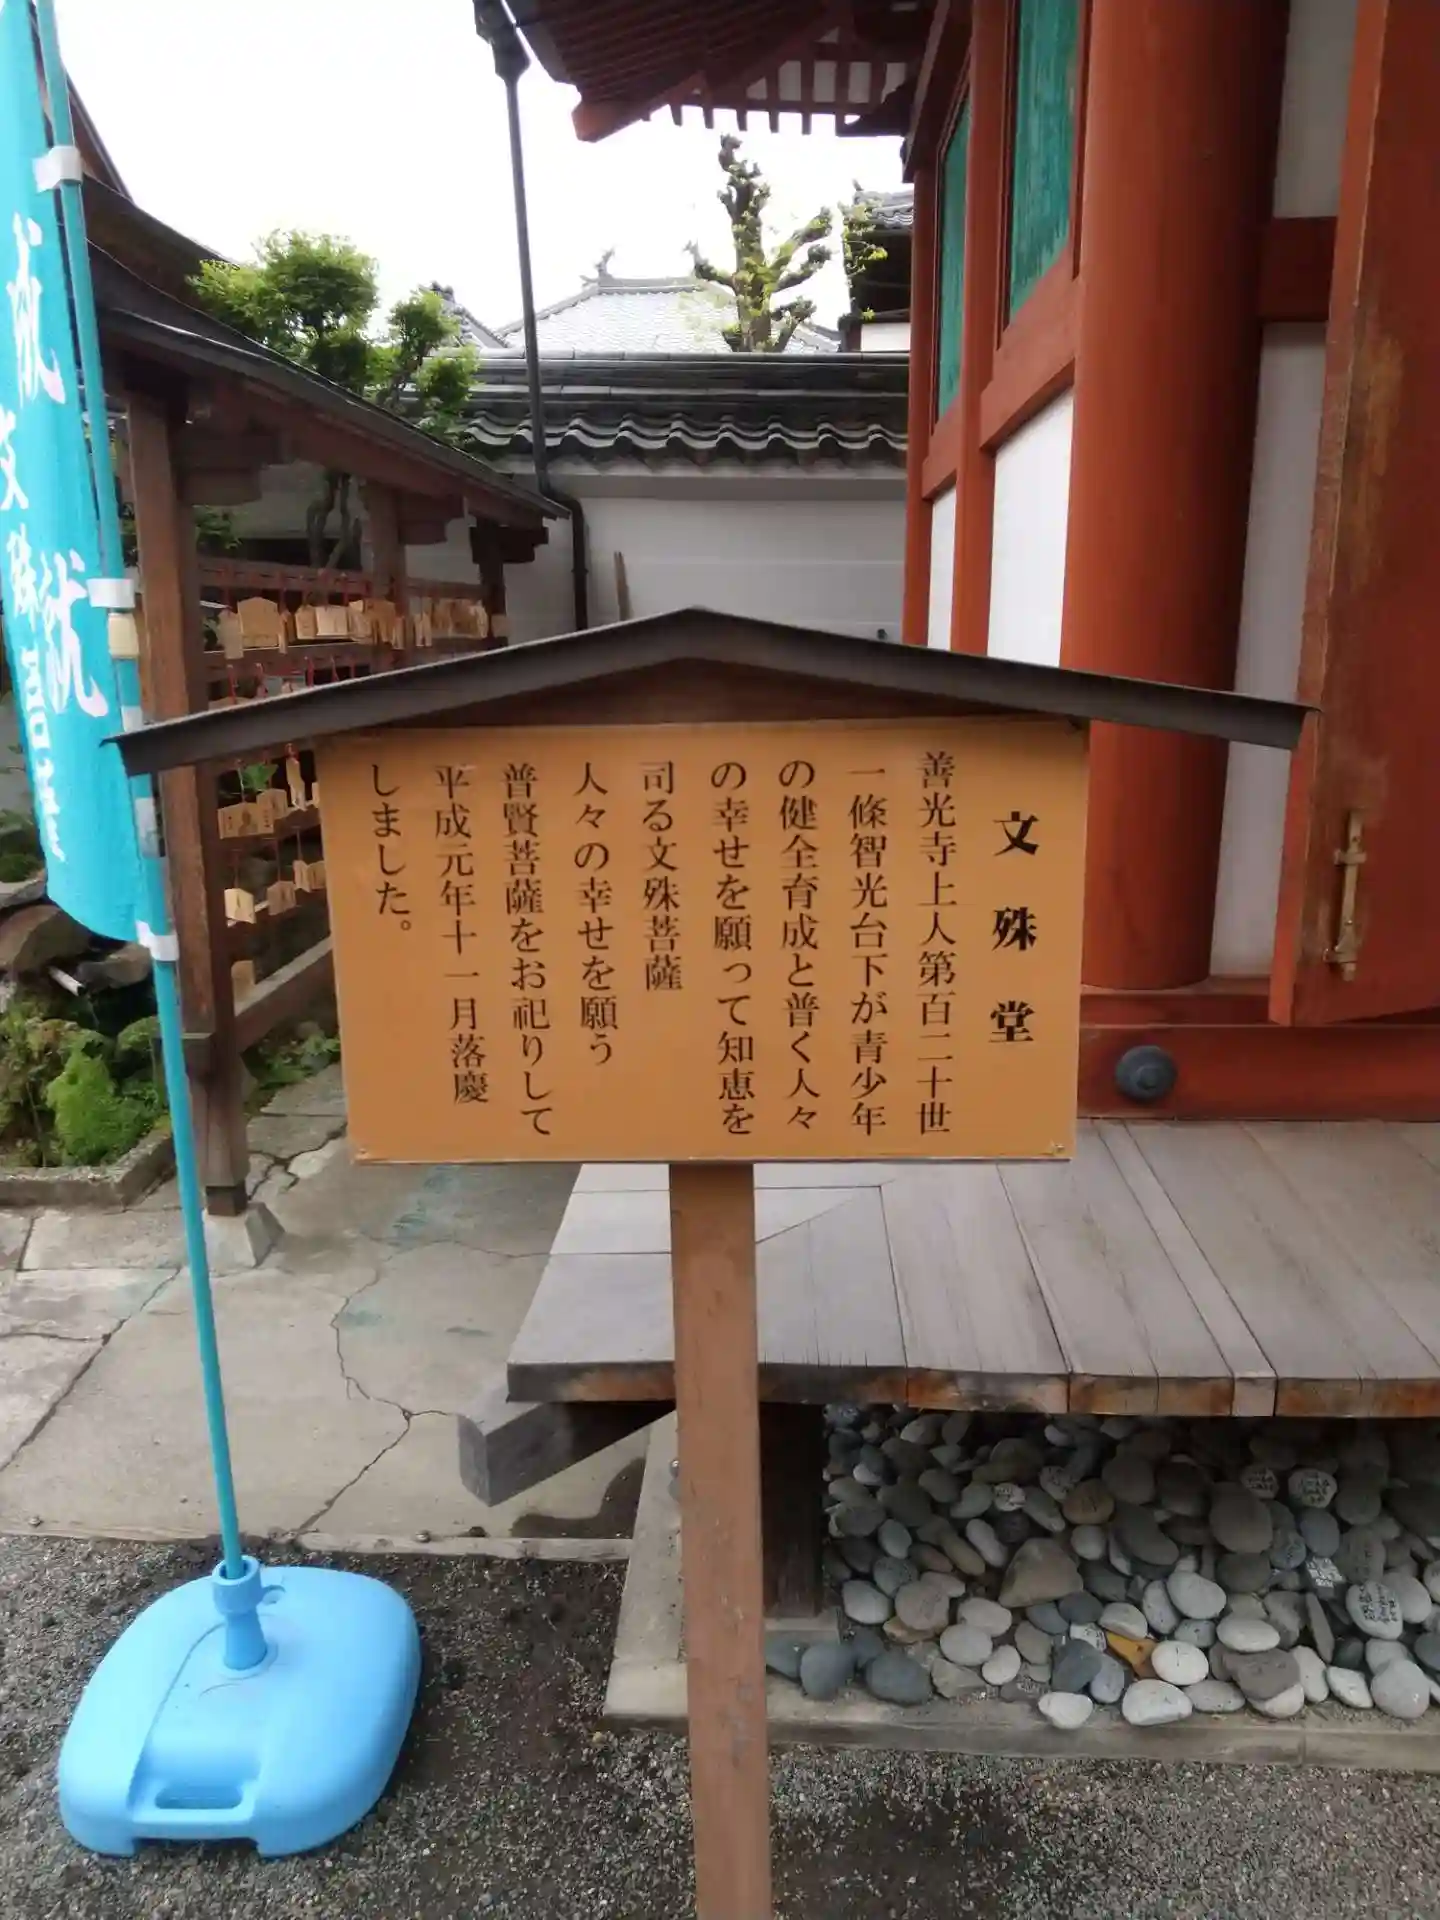 文殊堂
善光寺上人第百二十世
一條智光台下が青少年
の健全育成と普く人々
の幸せを願って知恵を
司る文殊菩薩
人々の幸せを願う
普賢菩薩をお祀りして
平成元年十一月落慶
しました。
成就
文殊菩薩